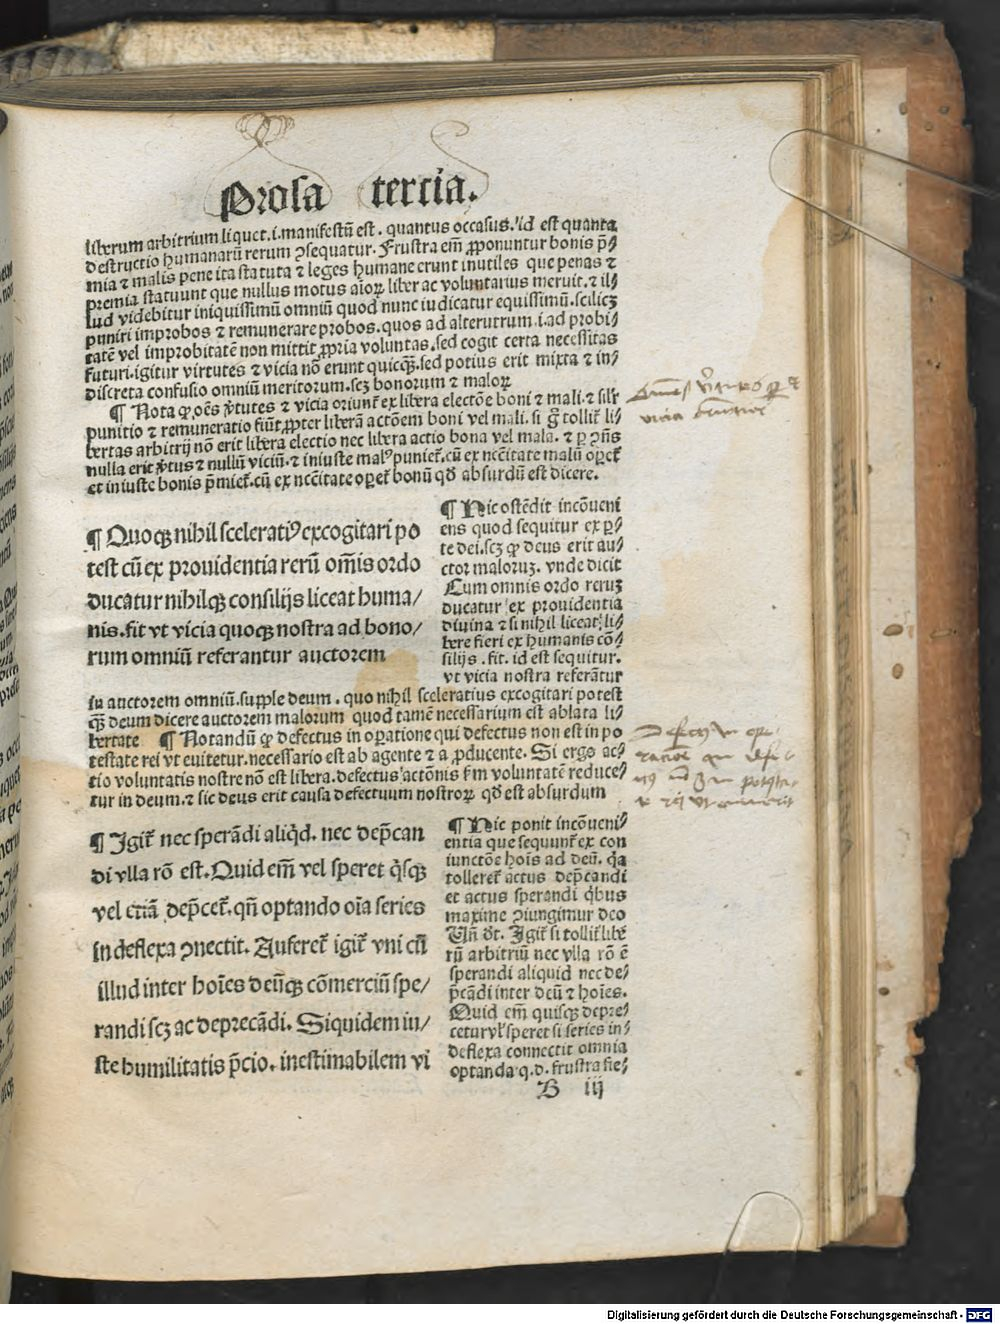 Prosa tercia.
liberum arbitrium liquet.i.manifestũ est. quantus occasus.id est quanta
destructio humanarũ rerum ꝯsequatur. Frustra em̃ ꝓponuntur bonis p̃⸗
mia ⁊ malis pene ita statuta ⁊ leges humane erunt inutiles que penas ⁊
premia statuunt que nullus motus aĩoꝝ liber ac voluntarius meruit.⁊ il⸗
lud videbitur iniquissimũ omniũ quod nunc iudicatur equissimũ.scilicꝫ
puniri improbos ⁊ remunerare probos.quos ad alterutrum.i.ad probi⸗
tatẽ vel improbitatẽ non mittit ꝓpria voluntas.sed cogit certa necessitas
futuri.igitur virtutes ⁊ vicia nõ erunt quicqꝫ.sed potius erit mixta ⁊ in⸗
discreta confusio omniũ meritorum.scꝫ bonorum ⁊ maloꝝ
¶ Nota ꝙ oẽs ṽtutes ⁊ vicia oriunt̃ ex libera electõe boni ⁊ mali.⁊ silr̃
punitio ⁊ remuneratio fiũt ꝓpter liberã actõem boni vel mali. si g̃ tollit̃ li⸗
bertas arbitrij nõ erit libera electio nec libera actio bona vel mala. ⁊ ꝑ ꝯñs
nulla erit ṽtus ⁊ nullũ viciũ.⁊ iniuste malꝰ puniet̃.cũ ex nc̃citate malũ oꝑet̃
et iniuste bonis p̃miet̃.cũ ex nc̃citate oꝑet̃ bonũ qđ absurdũ est dicere.
¶ Quoqꝫ nihil sceleratiꝰ excogitari po
test cũ ex prouidentia rerũ om̃is ordo
ducatur nihilqꝫ consilijs liceat huma⸗
nis.fit vt vicia quoqꝫ nostra ad bono⸗
rum omniũ referantur auctorem
¶ Hic ostẽdit incõueni
ens quod sequitur ex ꝑ⸗
te dei.scꝫ ꝙ deus erit au⸗
ctor maloruꝫ. vnde dicit
Cum omnis ordo reruꝫ
ducatur ex prouidentia
diuina ⁊ si nihil liceat li⸗
bere fieri ex humanis cõ⸗
silijs .fit. id est sequitur.
vt vicia nostra referãtur
in auctorem omniũ.supple deum. quo nihil sceleratius excogitari potest
qꝫ̃ deum dicere auctorem malorum quod tamẽ necessarium est ablata li⸗
bertate ¶ Notandũ ꝙ defectus in oꝑatione qui defectus non est in po
testate rei vt euitetur.necessario est ab agente ⁊ a ꝓducente. Si ergo ac⸗
tio voluntatis nostre nõ est libera.defectus actõnis f̃m voluntatẽ reduce⸗
tur in deum.⁊ sic deus erit causa defectuum nostroꝝ qđ est absurdum
¶ Igit̃ nec sperãdi aliq̇d. nec dep̃can
di vlla rõ est.Quid em̃ vel speret q̇sqꝫ
vel etiã dep̃cet̃.qñ optando oĩa series
indeflexa ꝯnectit. Auferet̃ igit̃ vni cũ
illud inter hoĩes deũqꝫ cõmerciũ spe⸗
randi scꝫ ac deprecãdi. Siquidem iu⸗
ste humilitatis p̃cio. inestimabilem vi
¶ Hic ponit incõueni⸗
entia que sequunt̃ ex con
iunctõe hoĩs ad deũ. q̃a
tolleret̃ actus dep̃candi
et actus sperandi q̇bus
maxime ꝯiungimur deo
Vñ đt. Igit̃ si tollit̃ libe̾
rũ arbitriũ nec vlla rõ ẽ
sperandi aliquid nec de⸗
p̃cãdi inter deũ ⁊ hoĩes.
Quid em̃ quisqꝫ depre⸗
cetur vl̃ speret si series in⸗
deflexa connectit omnia
optanda q.d. frustra fie⸗
B iij
Digitalisierung gefördert durch die Deutsche Forschungsgemeinschaft - DFG